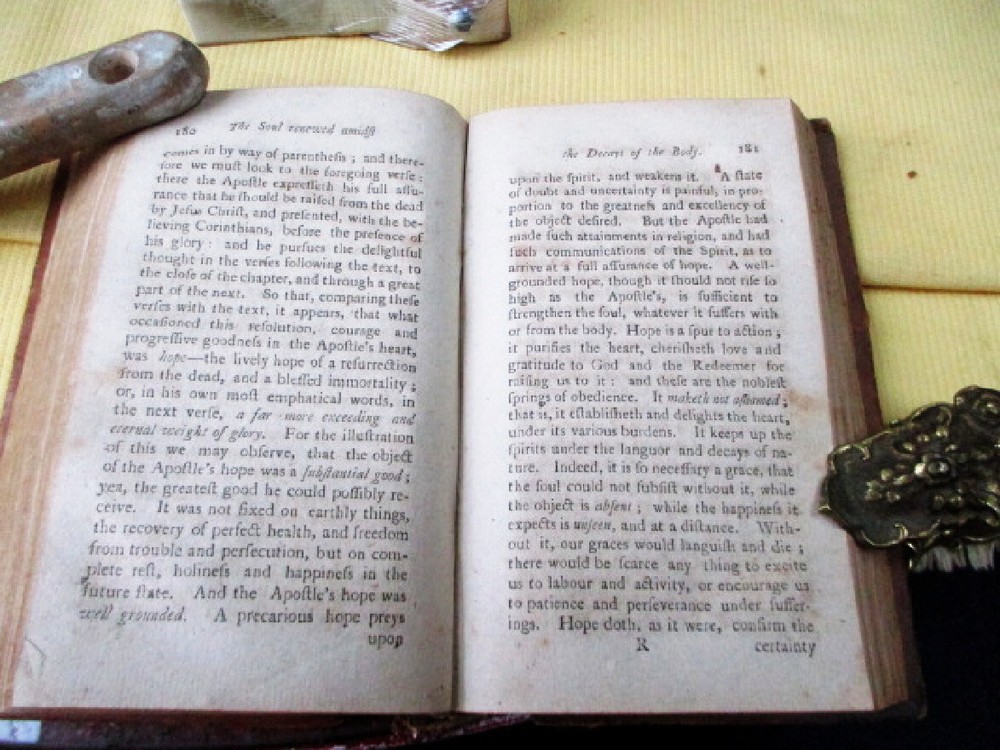 180 The Soul renewed amidſt
comes in by way of parentheſis ; and there-
fore we muſt look to the foregoing verſe :
there the Apoſtle expreſſeth his full aſſu-
rance that he ſhould be raiſed from the dead
by Jeſus Chriſt, and preſented, with the be-
lieving Corinthians, before the preſence of
his glory : and he purſues the delightful
thought in the verſes following the text, to
the cloſe of the chapter, and through a great
part of the next. So that, comparing theſe
verſes with the text, it appears, that what
occaſioned this reſolution, courage and
progreſſive goodneſs in the Apoſtle's heart,
was hope—the lively hope of a reſurrection
from the dead, and a bleſſed immortality ;
or, in his own moſt emphatical words, in
the next verſe, a far more exceeding and
eternal weight of glory. For the illuſtration
of this we may obſerve, that the object
of the Apoſtle's hope was a ſubſtantial good ;
yea, the greateſt good he could poſſibly re-
ceive. It was not fixed on earthly things,
the recovery of perfect health, and freedom
from trouble and perſecution, but on com-
plete reſt, holineſs and happineſs in the
future ſtate. And the Apoſtle's hope was
well grounded. A precarious hope preys
upon
the Decays of the Body. 181
upon the ſpirit, and weakens it. A ſtate
of doubt and uncertainty is painful, in pro-
portion to the greatneſs and excellency of
the object deſired. But the Apoſtle had
made ſuch attainments in religion, and had
ſuch communications of the Spirit, as to
arrive at a full aſſurance of hope. A well-
grounded hope, though it ſhould not riſe ſo
high as the Apoſtle's, is ſufficient to
ſtrengthen the ſoul, whatever it ſuffers with
or from the body. Hope is a ſpur to action ;
it purifies the heart, cheriſheth love and
gratitude to God and the Redeemer for
raiſing us to it : and theſe are the nobleſt
ſprings of obedience. It maketh not aſhamed ;
that is, it eſtabliſheth and delights the heart,
under its various burdens. It keeps up the
ſpirits under the languor and decays of na-
ture. Indeed, it is ſo neceſſary a grace, that
the ſoul could not ſubſiſt without it, while
the object is abſent ; while the happineſs it
expects is unſeen, and at a diſtance. With-
out it, our graces would languiſh and die ;
there would be ſcarce any thing to excite
us to labour and activity, or encourage us
to patience and perſeverance under ſuffer-
ings. Hope doth, as it were, confirm the
R certainty